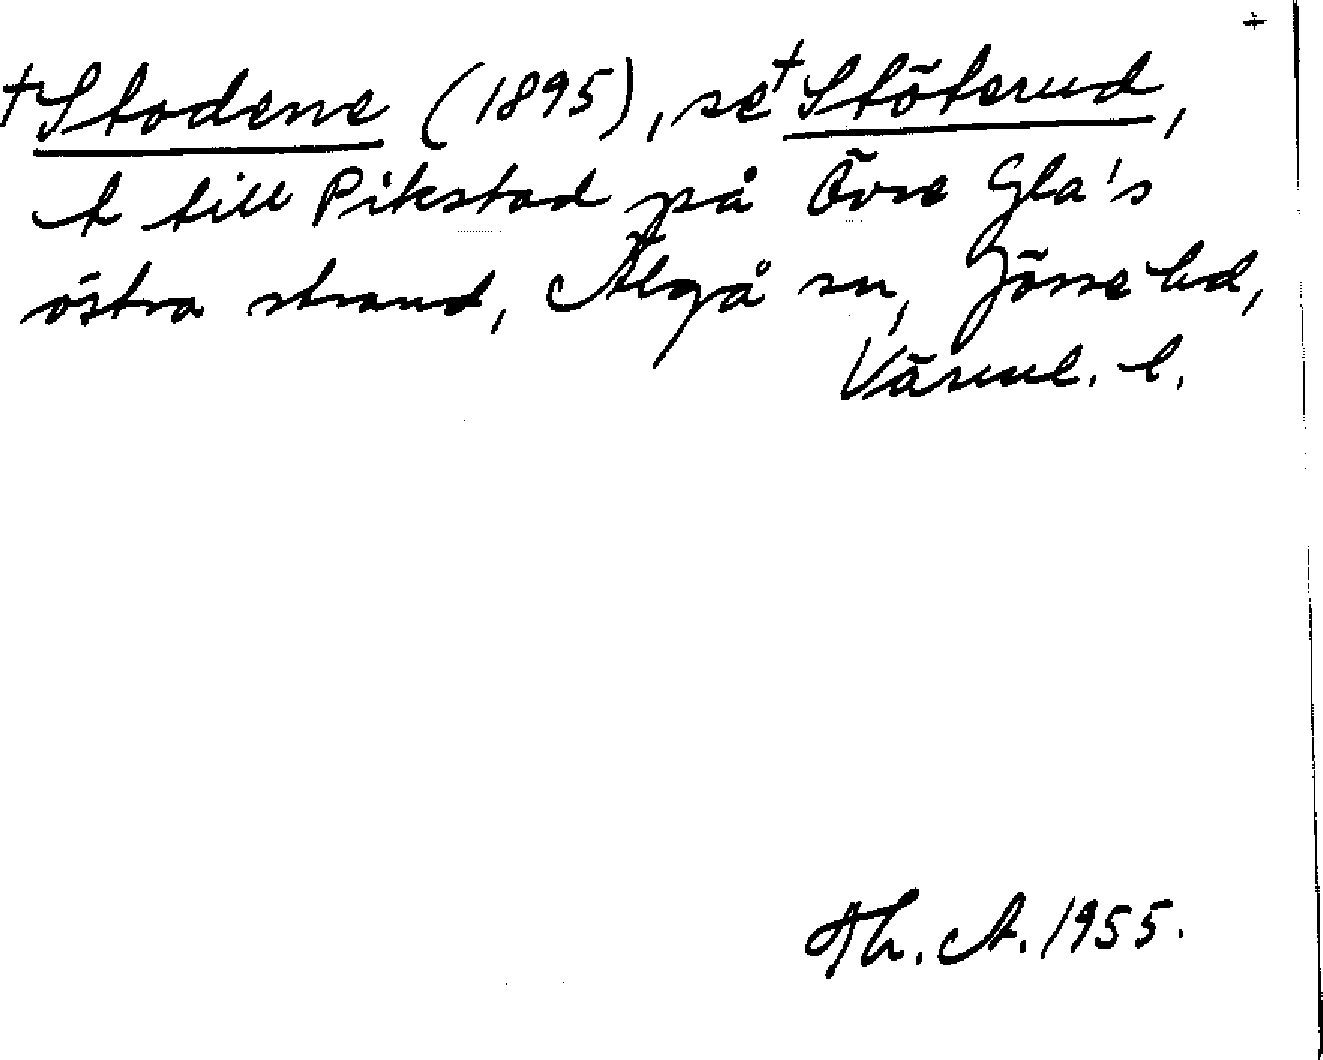 +
†Stodene (1895), se †Stöterud,
t till Pikstad på Övre Gla's
östra strand, Älgå sn, Jösse hd,
Värml. l.
Th. A. 1955.